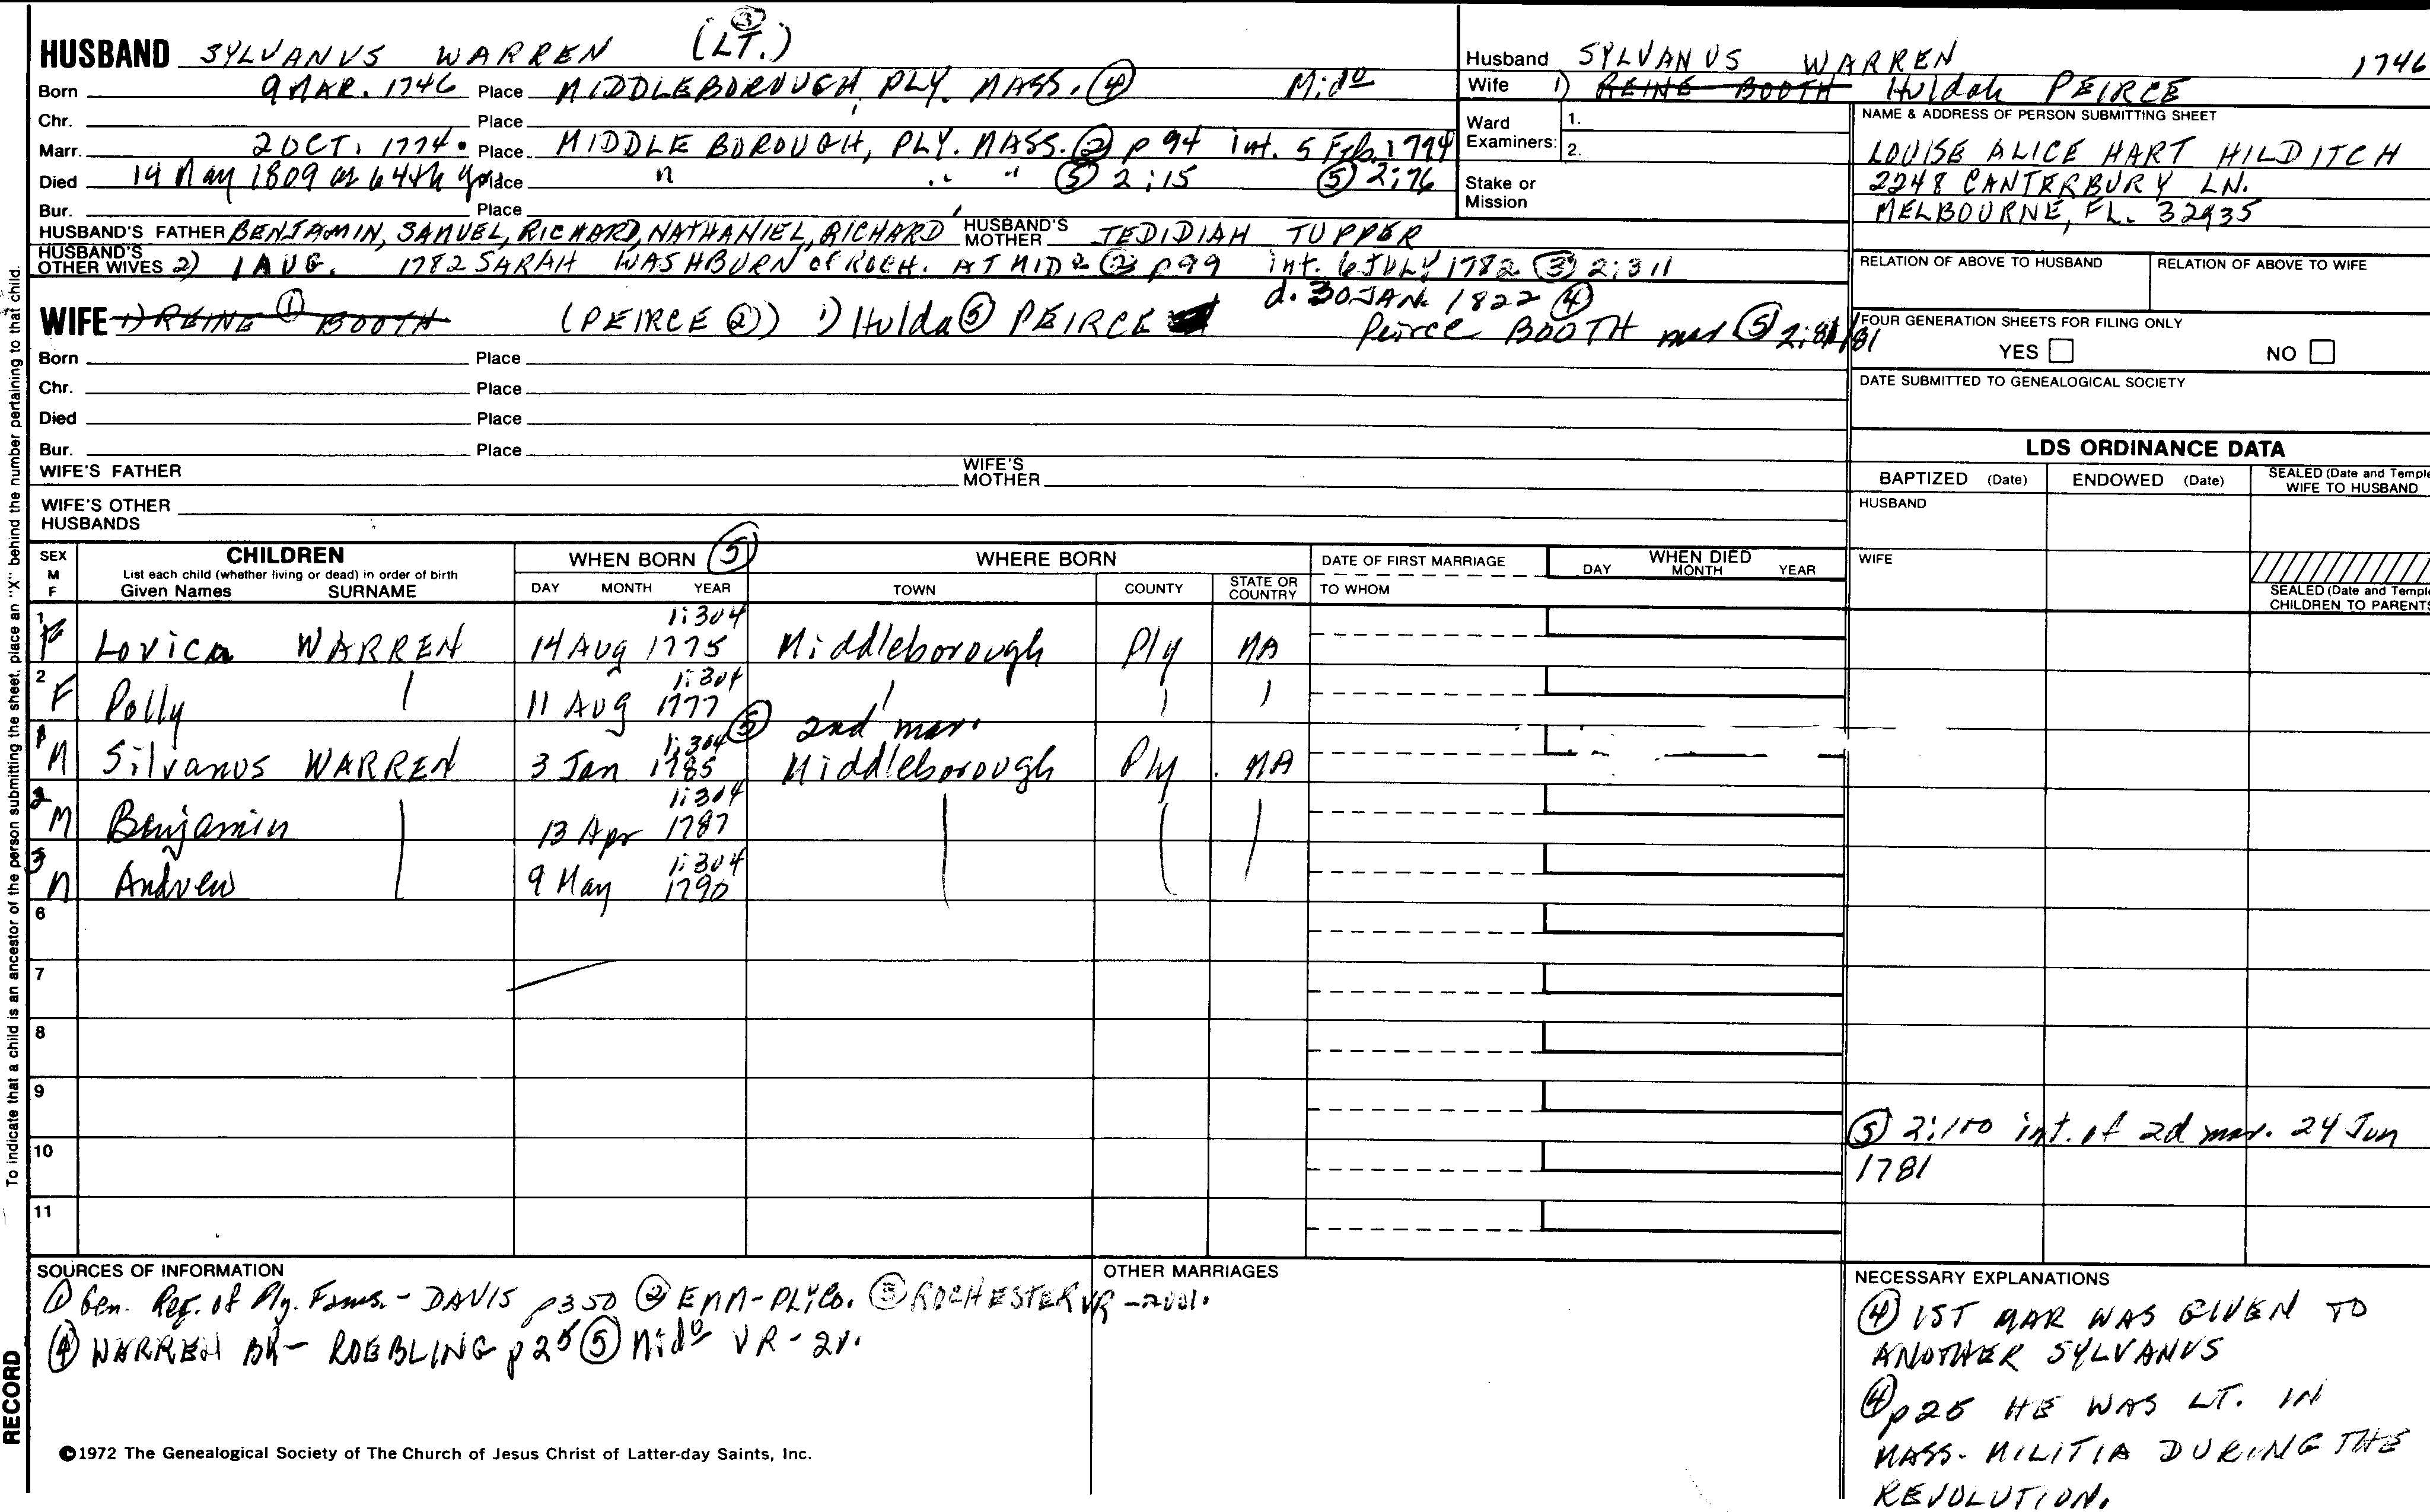 HUSBAND SYLVANUS WARREN (LT.) ③
Born 9 MAR. 1746 Place MIDDLEBOROUGH, PLY. MASS. ④ Mido
Chr. Place
Marr. 2 OCT. 1774. Place MIDDLEBOROUGH, PLY. MASS. ② p 94 int. 5 Feb. 1774
Died 14 May 1809 in 64th yr Place " " " ⑤ 2:15 ⑤ 2:76
Bur. Place
HUSBAND'S FATHER BENJAMIN, SAMUEL, RICHARD, NATHANIEL, RICHARD HUSBAND'S MOTHER JEDIDIAH TUPPER
HUSBAND'S OTHER WIVES 2) 1 AUG. 1782 SARAH WASHBURN of ROCH. AT MIDo ② p99 int. 6 JULY 1782 ③ 2:311
d. 30 JAN. 1822 ④
WIFE 1) REINE ① BOOTH (PEIRCE ②) 1) Hulda ⑤ PEIRCE
Peirce BOOTH mar ⑤ 2:81
Born Place
Chr. Place
Died Place
Bur. Place
WIFE'S FATHER WIFE'S MOTHER
WIFE'S OTHER HUSBANDS
Husband SYLVANUS WARREN 1746
Wife 1) REINE BOOTH Huldah PEIRCE
Ward Examiners: 1.
2.
Stake or Mission
NAME & ADDRESS OF PERSON SUBMITTING SHEET
LOUISE ALICE HART HILDITCH
2248 CANTERBURY LN.
MELBOURNE, FL. 32935
RELATION OF ABOVE TO HUSBAND RELATION OF ABOVE TO WIFE
FOUR GENERATION SHEETS FOR FILING ONLY
YES NO
DATE SUBMITTED TO GENEALOGICAL SOCIETY
LDS ORDINANCE DATA
BAPTIZED (Date) ENDOWED (Date) SEALED (Date and Temple
WIFE TO HUSBAND
HUSBAND
WIFE
SEALED (Date and Temple
CHILDREN TO PARENTS
SEX M F CHILDREN WHEN BORN ⑤ WHERE BORN DATE OF FIRST MARRIAGE WHEN DIED
List each child (whether living or dead) in order of birth
Given Names SURNAME DAY MONTH YEAR TOWN COUNTY STATE OR COUNTRY TO WHOM DAY MONTH YEAR
1:304
1 F Lovica WARREN 14 Aug 1775 Middleborough Ply MA
1:304
2 F Polly 11 Aug 1777
⑤ 2nd mar.
1:304
1 M Silvanus WARREN 3 Jan 1785 Middleborough Ply. MA
1:304
2 M Benjamin 13 Apr 1787
1:304
3 M Andrew 9 May 1790
6
7
8
9
10
11
⑤ 2:100 int. of 2d mar. 24 Jun
1781
SOURCES OF INFORMATION
① Gen. Reg. of Ply. Fams. - DAVIS p350 ② EMM-PLYCo. ③ ROCHESTER VR - 2vol.
④ WARREN BK - ROEBLING p25 ⑤ Mido VR - 2v.
OTHER MARRIAGES
NECESSARY EXPLANATIONS
④ 1ST MAR WAS GIVEN TO
ANOTHER SYLVANUS
④ p25 HE WAS LT. IN
MASS. MILITIA DURING THE
REVOLUTION.
©1972 The Genealogical Society of The Church of Jesus Christ of Latter-day Saints, Inc.
To indicate that a child is an ancestor of the person submitting the sheet, place an "X" behind the number pertaining to that child.
RECORD